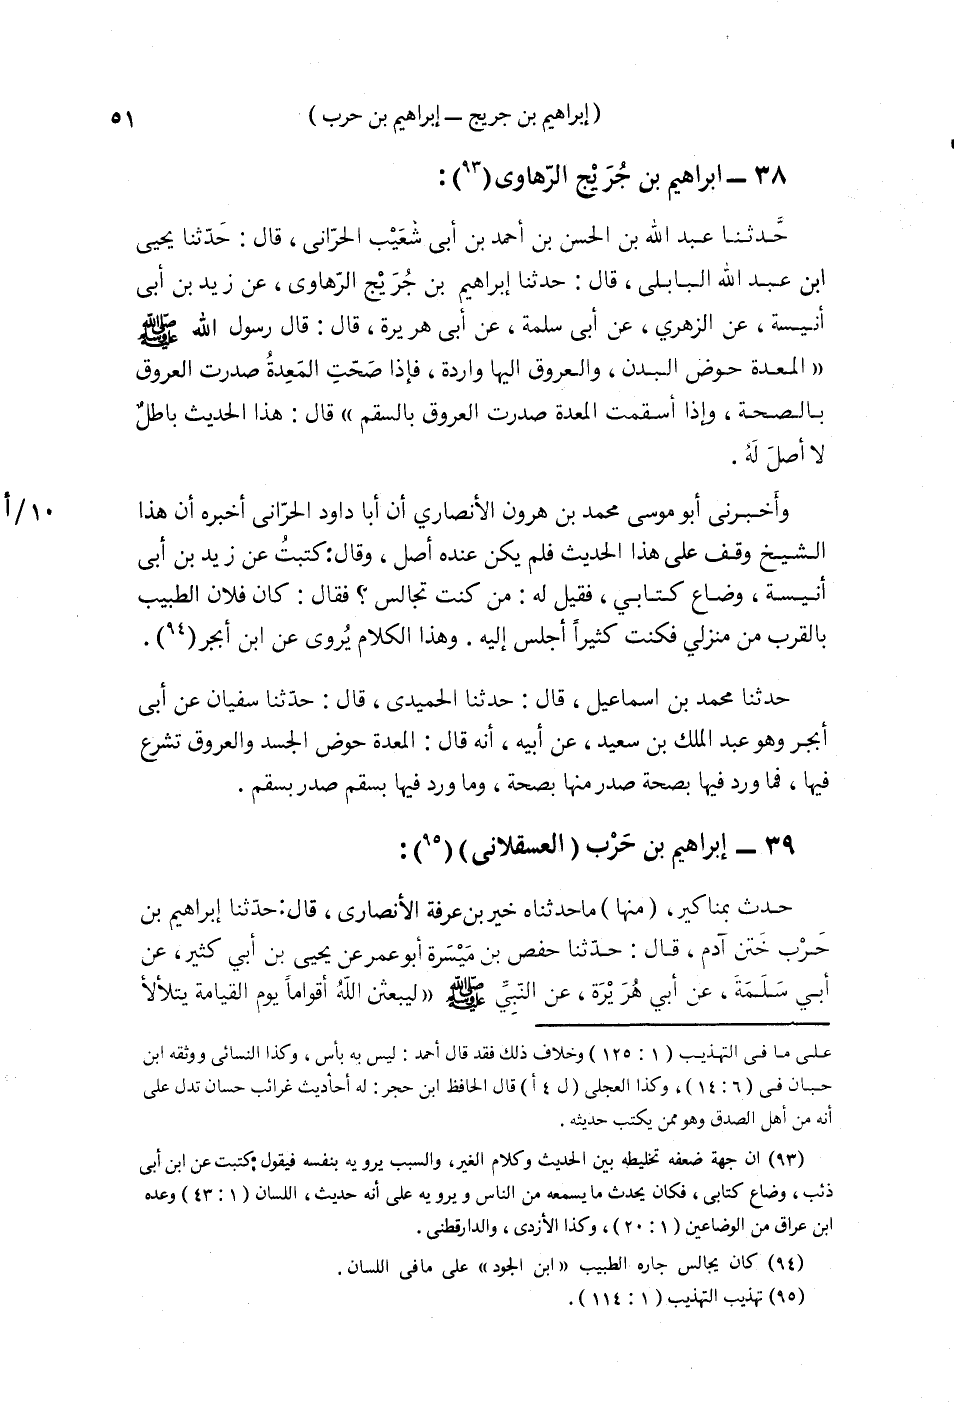 ( إبراهيم بن جريج – إبراهيم بن حرب ) ٥١
٣٨ – ابراهيم بن جُرَيْج الرّهاوى (٩٣) :
حَّدثنا عبد الله بن الحسن بن أحمد بن أبى شُعَيْب الحرّانى ، قال : حَدّثنا يحيى
ابن عبد الله البابلى ، قال : حدثنا إبراهيم بن جُرَيْج الرّهاوى ، عن زيد بن أبى
أنيسة ، عن الزهري ، عن أبى سلمة ، عن أبى هريرة ، قال : قال رسول الله ﷺ
« المعدة حوض البدن ، والعروق اليها واردة ، فإذا صَحّتِ المَعِدةُ صدرت العروق
بالصحة ، وإذا أسقمت المعدة صدرت العروق بالسقم » قال : هذا الحديث باطلٌ
لا أصلَ لَهُ .
وأَخبرنى أبو موسى محمد بن هرون الأنصاري أن أبا داود الحرّانى أخبره أن هذا ١٠/أ
الشيخ وقف على هذا الحديث فلم يكن عنده أصل ، وقال: كتبتُ عن زيد بن أبى
أنيسة ، وضاع كتابي ، فقيل له : من كنت تجالس ؟ فقال : كان فلان الطبيب
بالقرب من منزلي فكنت كثيراً أجلس إليه . وهذا الكلام يُروى عن ابن أبجر (٩٤) .
حدثنا محمد بن اسماعيل ، قال : حدثنا الحميدى ، قال : حدّثنا سفيان عن أبى
أبجر وهو عبد الملك بن سعيد ، عن أبيه ، أنه قال : المعدة حوض الجسد والعروق تشرع
فيها ، فما ورد فيها بصحة صدر منها بصحة ، وما ورد فيها بسقم صدر بسقم .
٣٩ – إبراهيم بن حَرْب ( العسقلانى ) (٩٥) :
حدث بمناكير، ( منها ) ماحدثناه خير بن عرفة الأنصارى ، قال: حدّثنا إبراهيم بن
حَرْب خَتَن آدم ، قال : حدّثنا حفص بن مَيْسَرة أبو عمر عن يحيى بن أبي كثير، عن
أبي سَلَمَةَ ، عن أبي هُرَيْرَة ، عن النَبِيِّ ﷺ « ليبعثن اللّهُ أقواماً يوم القيامة يتلألأ
على ما فى التهذيب ( ١ : ١٢٥ ) وخلاف ذلك فقد قال أحمد : ليس به بأس ، وكذا النسائى ووثقه ابن
حبان فى ( ٦ : ١٤ ) ، وكذا العجلى ( ل ٤ أ ) قال الحافظ ابن حجر : له أحأديث غرائب حسان تدل على
أنه من أهل الصدق وهو ممن يكتب حديثه .
(٩٣) ان جهة ضعفه تخليطه بين الحديث وكلام الغير، والسبب يرويه بنفسه فيقول: كتبت عن ابن أبى
ذئب ، وضاع كتابى ، فكان يحدث ما يسمعه من الناس ويرويه على أنه حديث ، اللسان ( ١ : ٤٣ ) وعده
ابن عراق من الوضاعين ( ١ : ٢٠ ) ، وكذا الأزدى ، والدارقطنى .
(٩٤) كان يجالس جاره الطبيب « ابن الجود » على مافى اللسان .
(٩٥) تهذيب التهذيب ( ١ : ١١٤ ) .